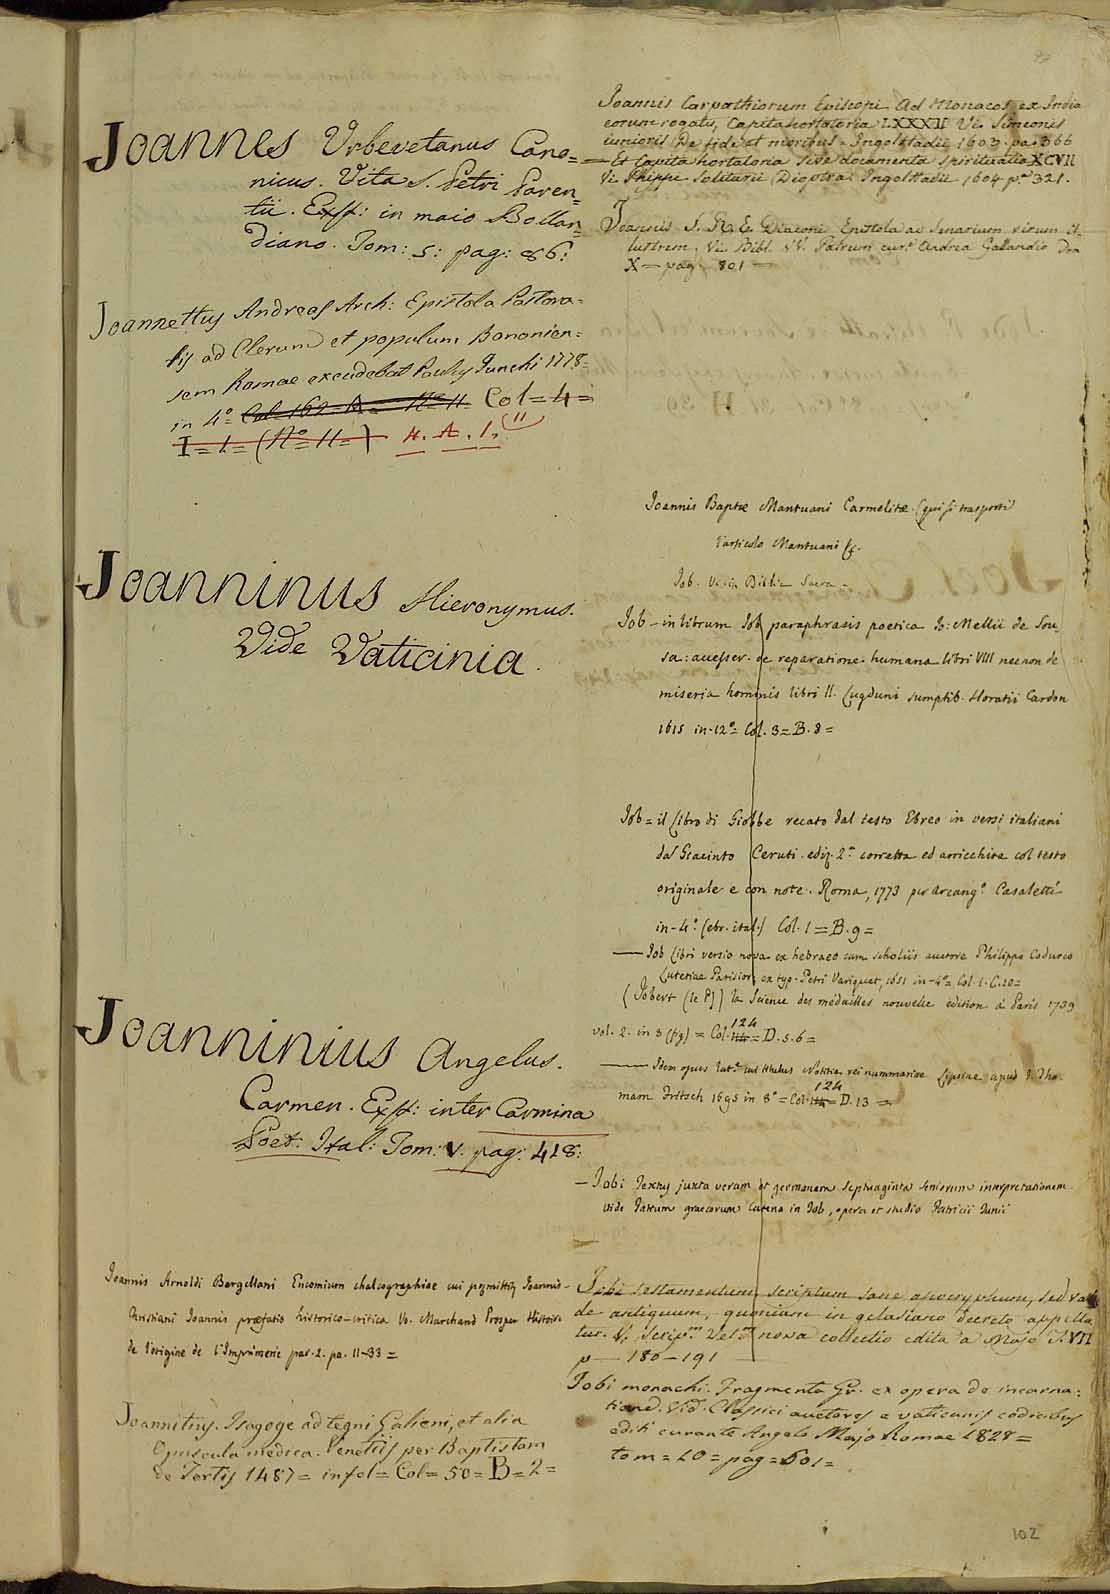 Joannes Urbevetanus Cano=
nicus. Vita S. Petri Paren=
tii. Exst: in maio Bollan=
diano. Tom: 5: pag: 86:
Joannettus Andreas Arch: Epistola Pastora=
lis ad Clerum et populum Bononien=
sem Romae excudebat Paulus Junchi 1778=
in 4.° Col= 4=
I= 1= (N°= 11=) 4. A. 1. 11
Joanninus Hieronymus.
Vide Vaticinia.
Joanninius Angelus.
Carmen. Exst: inter Carmina
Poet: Ital: Tom: V. pag: 418:
Joannis Arnoldi Bergellani Encomium chalcographiae cui praemittitur Joannis
Christiani Joannis praefatio historico-critica Vo. Marchand Prosper Histoire
de l'origine de l'Imprimerie par. 2. pa. 11-33=
Joannitius. Isagoge ad tegni Galieni, et alia
Opuscula medica. Venetiis per Baptistam
de Tortis 1487= in fol= Col= 50= B= 2=
Joannis Carpathiorum Episcopi Ad Monacos ex India
eorum rogatu, Capita hortatoria LXXXII Vi. Simeonis
iunioris De fide et moribus. Ingolstadii 1603. pa. 366
— Et Capita hortatoria sive documenta spiritualia XCVII
Vi. Philippi Solitarii Dioptra. Ingolstadii 1604 p.ª 321.
Joannis S. R. E. Diaconi Epistola ad Senarium virum il=
lustrem. Vi. Bibl. VV. Patrum cur.e Andrea Gallandio Tom
X — pag. 801 —
Joannis Baptae Mantuani Carmelitae (qui si trasporti
l'articolo Mantuani &.
Job. Vide Biblia Sacra =
Job - in librum Job paraphrasis poetica Io: Mellii de Sou=
sa: accesser. de reparatione humana libri VIII necnon de
miseria hominis libri II. Lugduni sumptib. Horatii Cardon
1615 in-12°= Col. 3= B. 8=
Job= il Libro di Giobbe recato dal testo Ebreo in versi italiani
dal Giacinto Ceruti. ediz. 2.ª corretta ed arricchita col testo
originale e con note. Roma, 1773 per Arcang.° Casaletti
in-4.° (ebr. ital.) Col. 1= B. 9=
— Job Libri versio nova ex hebraeo cum scholiis auctore Philippo Codurco
Lutetiae Parisior. ex typ. Petri Variquet, 1651 in-4°= Col. 1. C. 10=
(Jobert (le P.)) la Science des medailles nouvelle edition à Paris 1739
vol. 2. in 8 (fig) = Col. 124= D. 5. 6=
— Idem opus lat.e cui titulus Notitia rei nummariae Lipsiae apud I. Tho=
mam Fritsch 1695 in 8°= Col. 124= D. 13=
— Jobi Textus juxta veram et germanam septuaginta seniorum interpretationem
vide Patrum graecorum Catena in Job, opera et studio Patricii Junii
Jobi testamentum scriptum sane apocryphum, sed val=
de antiquum, quoniam in gelasiano decreto appella
tur. Vi. Scrip.m Vet.m nova collectio edita a Majo T. VII
p — 180-191 —
Jobi monachi. Fragmenta Gr. ex opera de incarna:
tione. Vid. Classici auctores e vaticanis codicibus
editi curante Angelo Majo Romae 1828=
tom= 10= pag= 601=
102